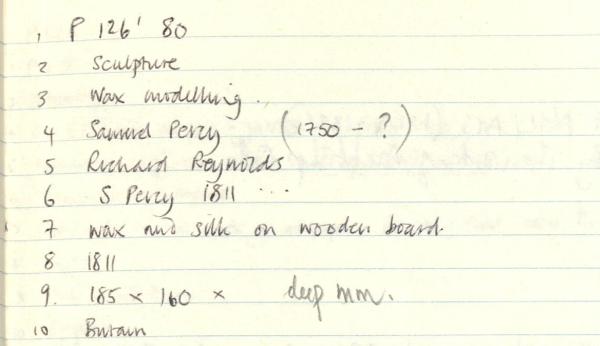 1, P 126' 80
2 Sculpture
3 Wax modelling.
4 Samuel Percy (1750 - ?)
5 Richard Reynolds
6 S Percy 1811 ...
7 wax and silk on wooden board.
8 1811
9. 185 x 160 x deep mm.
10 Britain